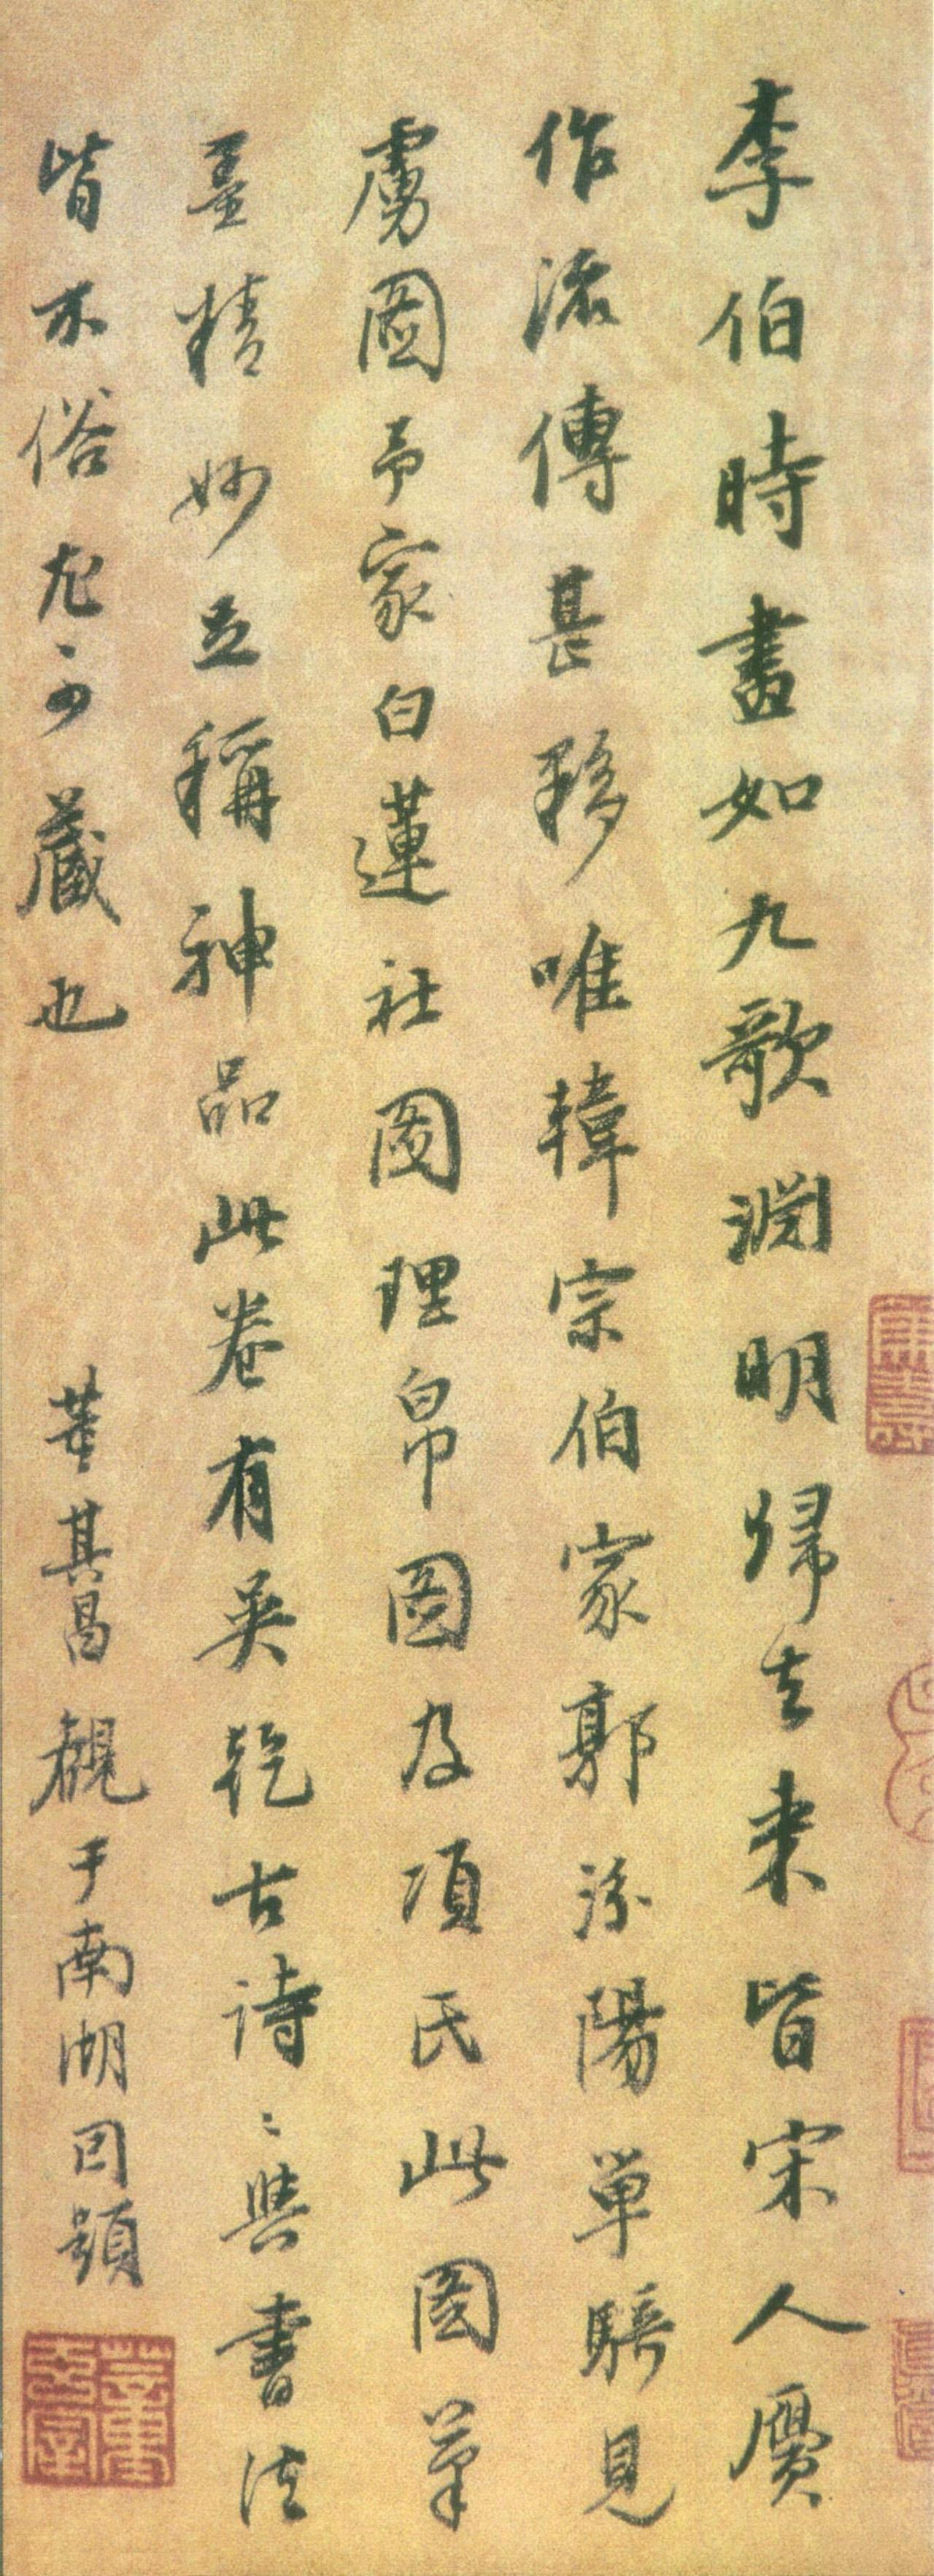 李伯時畫如九歌淵明歸去来皆宋人贋
作流傳甚夥唯韓宗伯家郭汾陽單騎見
虜圖予家白蓮社圖理帛圖及項氏此圖筆
墨精妙立稱神品此卷有吴説古詩〻與書法
皆不俗尤〻可藏也 董其昌觀于南湖因題